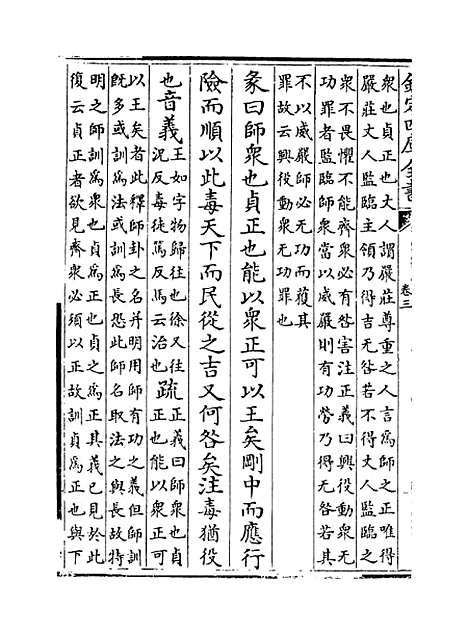 欽定四庫全書
卷三
衆也貞正也丈人謂嚴莊尊重之人言爲師之正唯得
嚴莊丈人監臨主領乃得吉无咎若不得丈人監臨之
衆不畏懼不能齊衆必有咎害注正義曰興役動衆无
功罪者監臨師衆當以威嚴則有功勞乃得无咎若其
不以威嚴師必无功而獲其
罪故云興役動衆无功罪也
彖曰師衆也貞正也能以衆正可以王矣剛中而應行
險而順以此毒天下而民從之吉又何咎矣注毒猶役
也音義王如字物歸往也徐又往
況反毒徒篤反馬云治也
疏正義曰師衆也貞
正也能以衆正可
以王矣者此釋師卦之名并明用師有功之義但師訓
既多或訓爲法或訓爲長恐此師名取法之與長故特
明之師訓爲衆也貞爲正也貞之爲正其義已見於此
復云貞正者欲見齊衆必須以正故訓貞爲正也與下